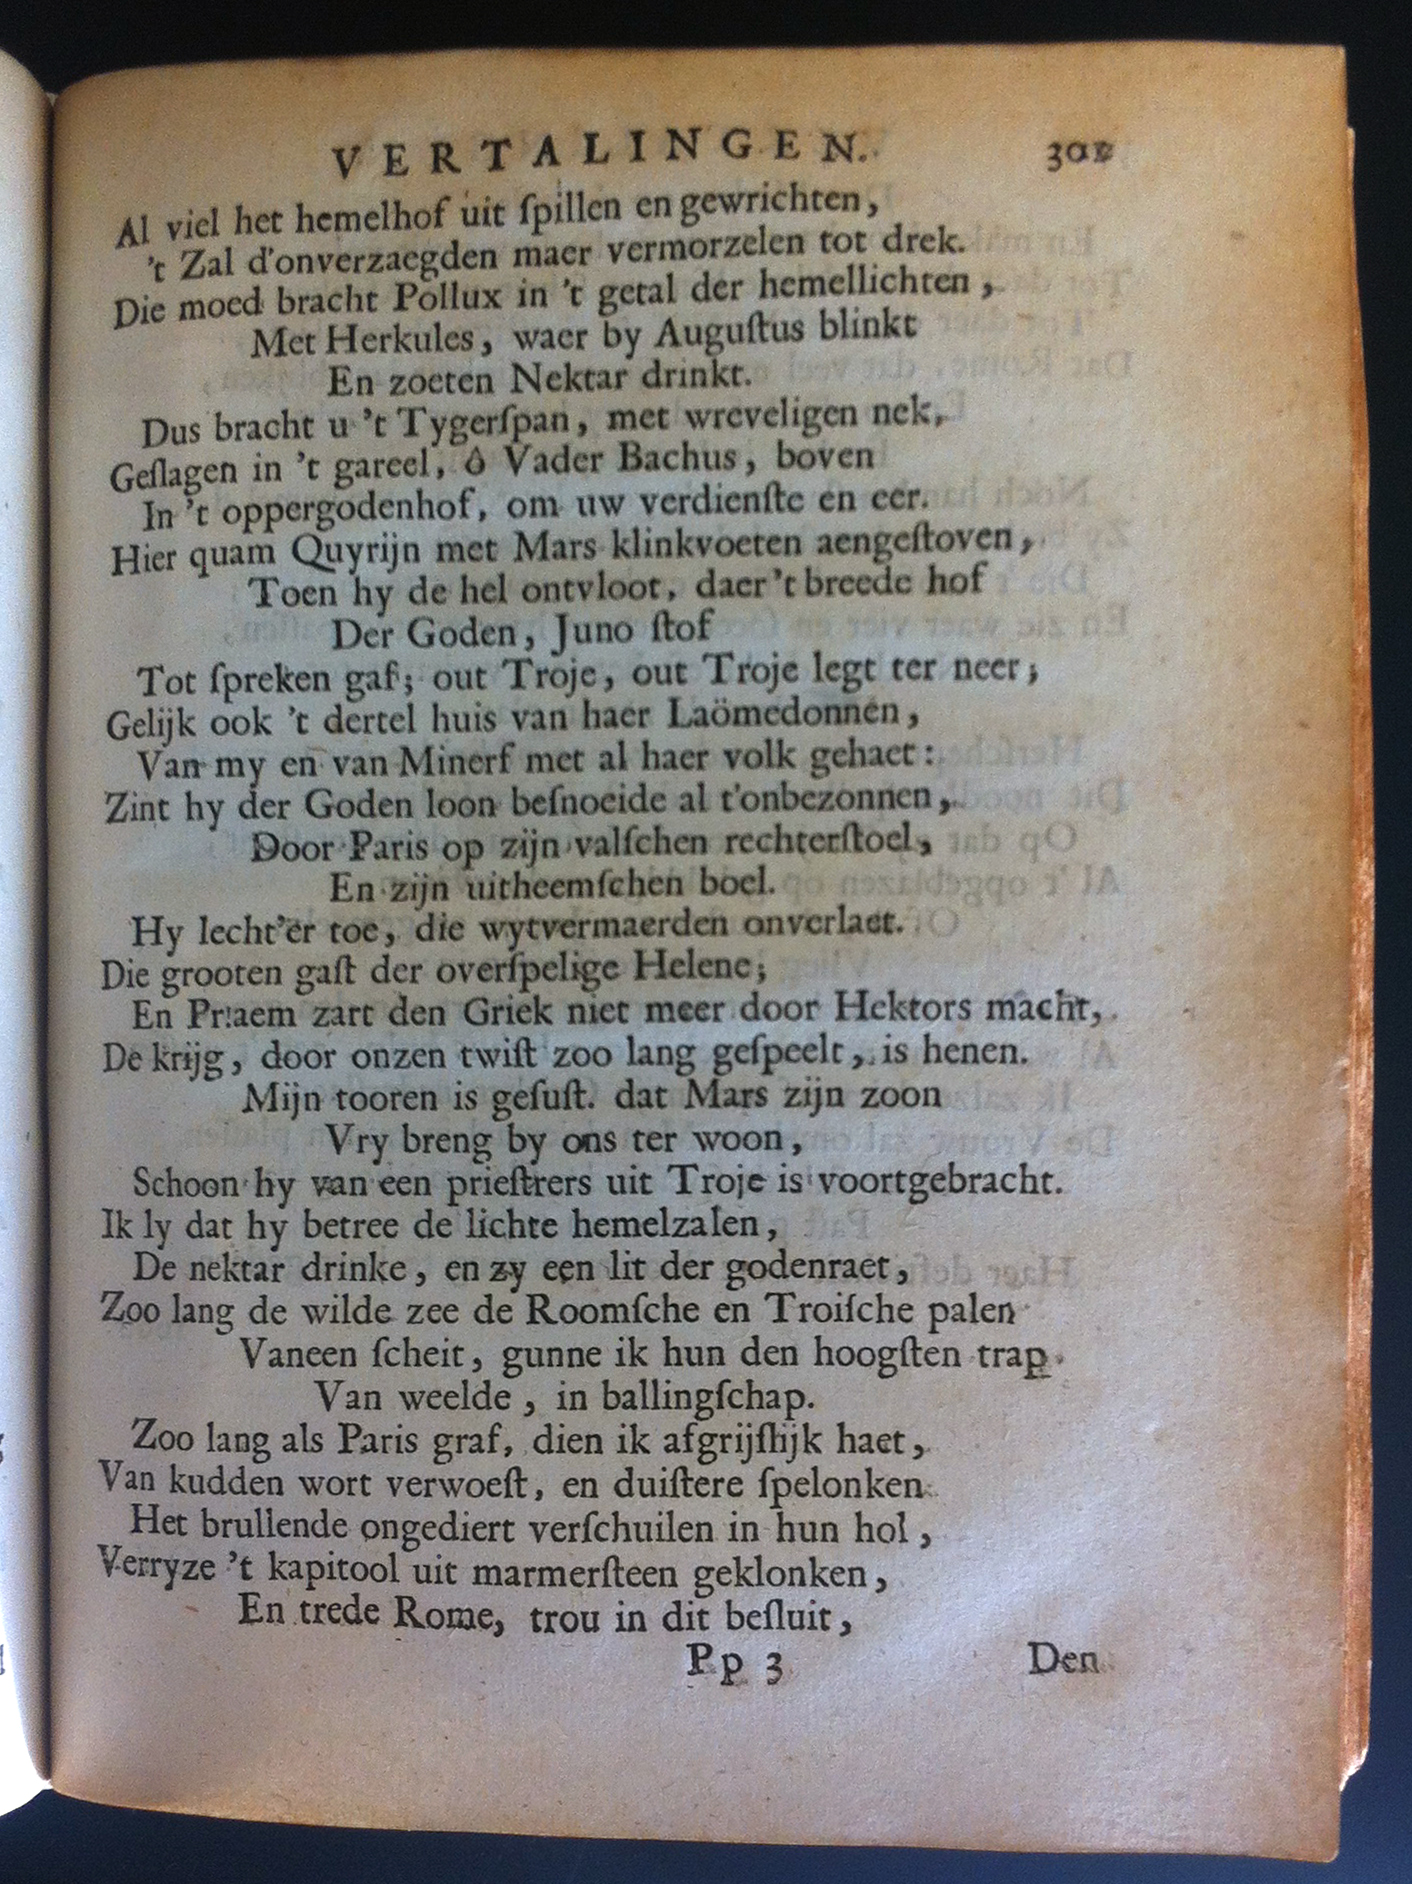 VERTALINGEN. 301
Al viel het hemelhof uit ſpillen en gewrichten,
't Zal d'onverzaegden maer vermorzelen tot drek.
Die moed bracht Pollux in 't getal der hemellichten,
Met Herkules, waer by Auguſtus blinkt
En zoeten Nektar drinkt.
Dus bracht u 't Tygerſpan, met wreveligen nek,
Geſlagen in 't gareel, ô Vader Bachus, boven
In 't oppergodenhof, om uw verdienſte en eer.
Hier quam Quyrijn met Mars klinkvoeten aengeſtoven,
Toen hy de hel ontvloot, daer 't breede hof
Der Goden, Juno ſtof
Tot ſpreken gaf; out Troje, out Troje legt ter neer;
Gelijk ook 't dertel huis van haer Laömedonnen,
Van my en van Minerf met al haer volk gehaet:
Zint hy der Goden loon beſnoeide al t'onbezonnen,
Door Paris op zijn valſchen rechterſtoel,
En zijn uitheemſchen boel.
Hy lecht'er toe, die wytvermaerden onverlaet.
Die grooten gaſt der overſpelige Helene;
En Priaem zart den Griek niet meer door Hektors macht,
De krijg, door onzen twiſt zoo lang geſpeelt, is henen.
Mijn tooren is geſuſt. dat Mars zijn zoon
Vry breng by ons ter woon,
Schoon hy van een prieſtrers uit Troje is voortgebracht.
Ik ly dat hy betree de lichte hemelzalen,
De nektar drinke, en zy een lit der godenraet,
Zoo lang de wilde zee de Roomſche en Troiſche palen
Vaneen ſcheit, gunne ik hun den hoogſten trap
Van weelde, in ballingſchap.
Zoo lang als Paris graf, dien ik afgrijſlijk haet,
Van kudden wort verwoeſt, en duiſtere ſpelonken
Het brullende ongediert verſchuilen in hun hol,
Verryze 't kapitool uit marmerſteen geklonken,
En trede Rome, trou in dit beſluit,
Pp 3 Den